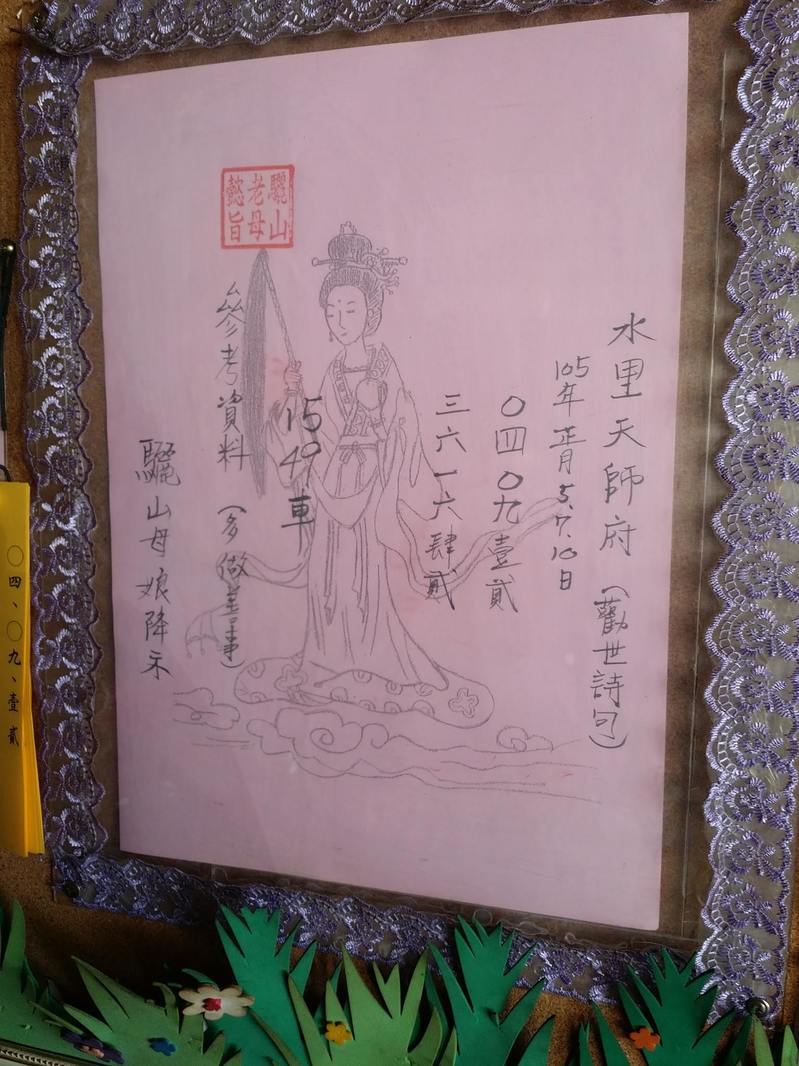 水里天師府（勸世詩句）
105年正月5.7.10日
〇四〇九壹貳
三六一六肆貳
1549車
參考資料（多做善事）
驪山母娘降示
驪山
老母
懿旨
〇四、〇九、壹貳